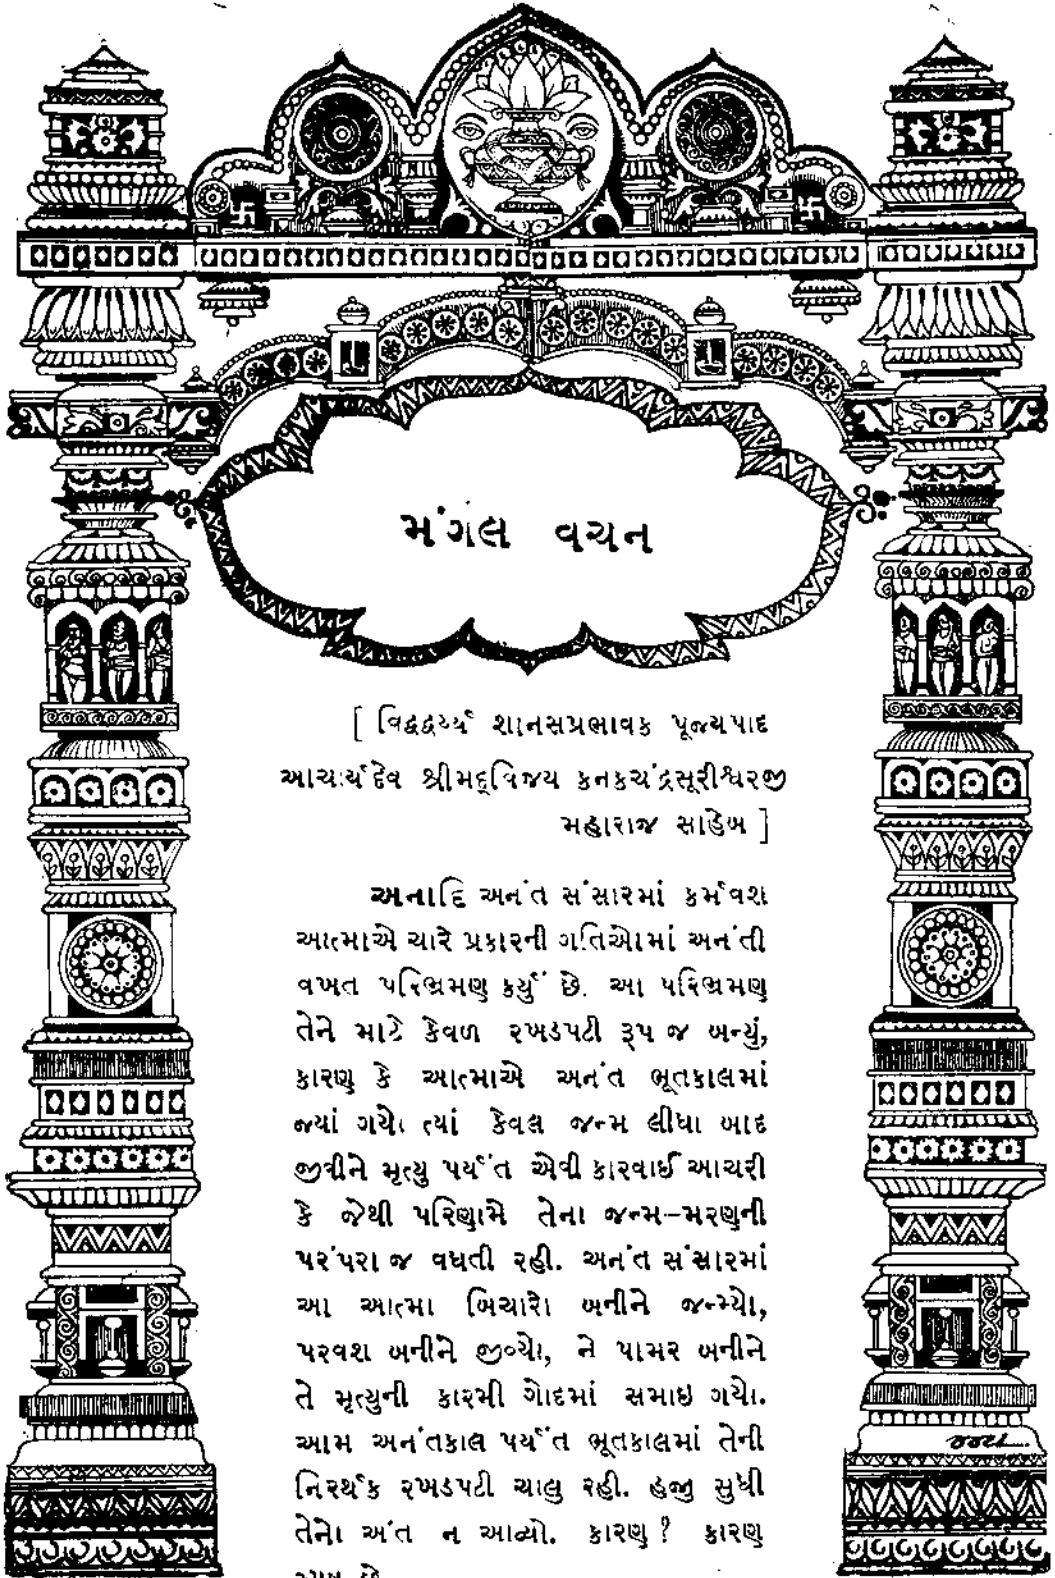 મંગલ વચન
[ વિદ્વદ્વર્ય્ય શાનસપ્રભાવક પૂજ્યપાદ
આચાર્યદેવ શ્રીમદ્વિજય કનકચંદ્રસૂરીશ્વરજી
મહારાજ સાહેબ ]
અનાદિ અનંત સંસારમાં કર્મવશ
આત્માએ ચારે પ્રકારની ગતિઓમાં અનંતી
વખત પરિભ્રમણ કર્યું છે. આ પરિભ્રમણ
તેને માટે કેવળ રખડપટી રૂપ જ બન્યું,
કારણ કે આત્માએ અનંત ભૂતકાલમાં
જ્યાં ગયો ત્યાં કેવલ જન્મ લીધા બાદ
જીવીને મૃત્યુ પર્યંત એવી કારવાઈ આચરી
કે જેથી પરિણામે તેના જન્મ–મરણની
પરંપરા જ વધતી રહી. અનંત સંસારમાં
આ આત્મા બિચારો બનીને જન્મ્યો,
પરવશ બનીને જીવ્યો, ને પામર બનીને
તે મૃત્યુની કારમી ગોદમાં સમાઇ ગયો.
આમ અનંતકાલ પર્યંત ભૂતકાલમાં તેની
નિરર્થક રખડપટી ચાલુ રહી. હજી સુધી
તેનો અંત ન આવ્યો. કારણ ? કારણ